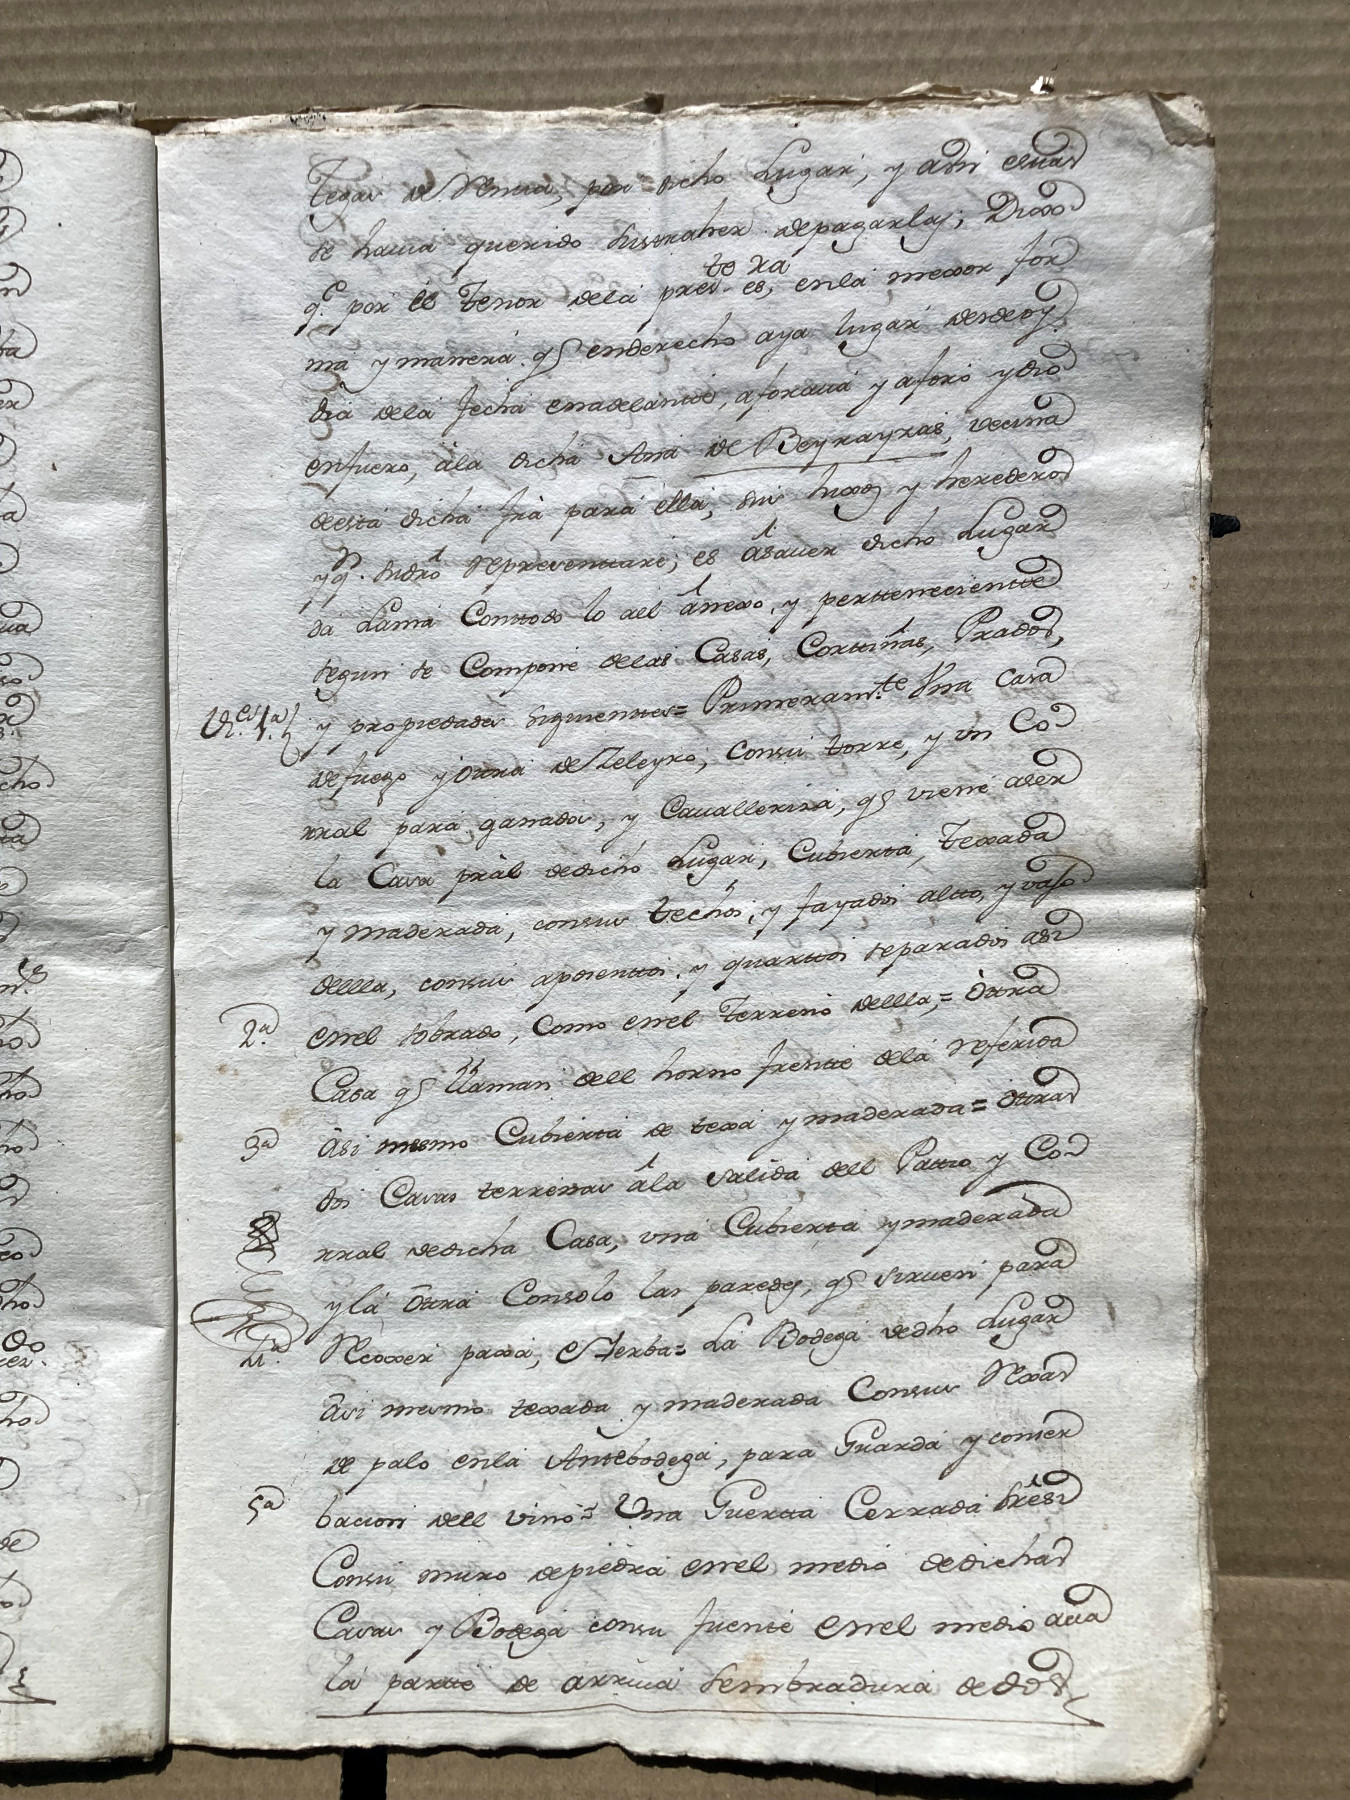 tegas de Renta, por dicho Lugar, y assi ellas
se havia querido sustraher depagarlas; Dixo
q.e por el tenor dela pres.te es, enla mexor for
ma y manera q.e enderecho aya lugar desdeoy
dia dela fecha enadelantte, aforava y aforó ydió
enfuero, ála dicha Ana de Beyrayras, vecina
desta dicha frâ para élla, sus hixos y herederos
yq.n sudrô Representtare; es ásaver dicho Lugar
da Lama Conttodo lo aél ánnexo, y pertteneciente
segun se Compone delas Casas, Corttiñas, Prados,
1.a
y propiedades siguienttes= Primeram.te Una Casa
defuego yôtra de Zeleyro, consu torre, y un Co
rral para ganados, y Cavalleriza, q.e viene aser
la Casa prâl dedicho Lugar, Cubierta, texada
y maderada, consus techos, y fayados altto, y vaso
dellla, consus aposenttos, y quarttos separados asi
2.a
enel sobrado, Como enel Terreno dellla,= Ôtra
Casa q.e llaman dell horno frente dela referida
3.a
Asi mesmo Cubierta de texa y maderada= ôtras
dos Casas terrenas ála salida dell Pattio y Co
rral dedicha Casa, una Cubierta ymaderada
yla Ôtra Consolo las paredes, q.e sirven para
4.a
Recoxer paxa, eYerba= La Bodega dedho Lugar
Asi mesmo texada y maderada Consus Rexas
de palo enla Antebodega, para Guarda y conser
5.a
bacion dell vino= Una Guertta Cerrada sbrési
Consu muro depiedra enel medio dedichas
Casas y Bodega consu fuente enel medio acia
la partte de arriva sembradura de dos